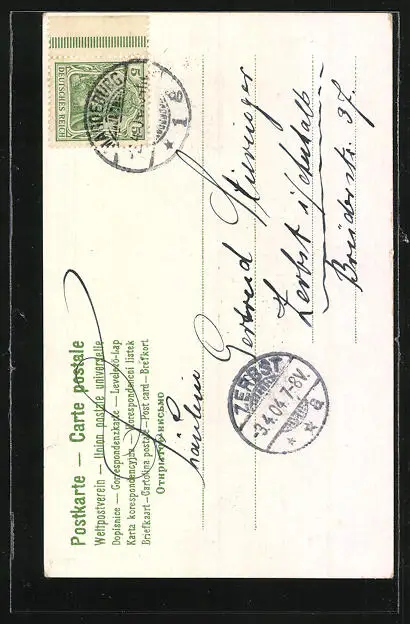 Postkarte — Carte postale
Weltpostverein — Union postale universelle
Dopisnice — Correspondenzkarte — Levelező-Lap
Karta korespondencyjna — Korespondencni listek
Briefkaart — Cartolina postale — Post card — Brefkort
Открытое письмо
DEUTSCHES REICH
5 5
MAGDEBURG
* 1 g
Fräulein Gertrud
Zerbst i/Anhalt
Brüderstr. 37.
ZERBST
-3.4.04.7-8V.
* * a